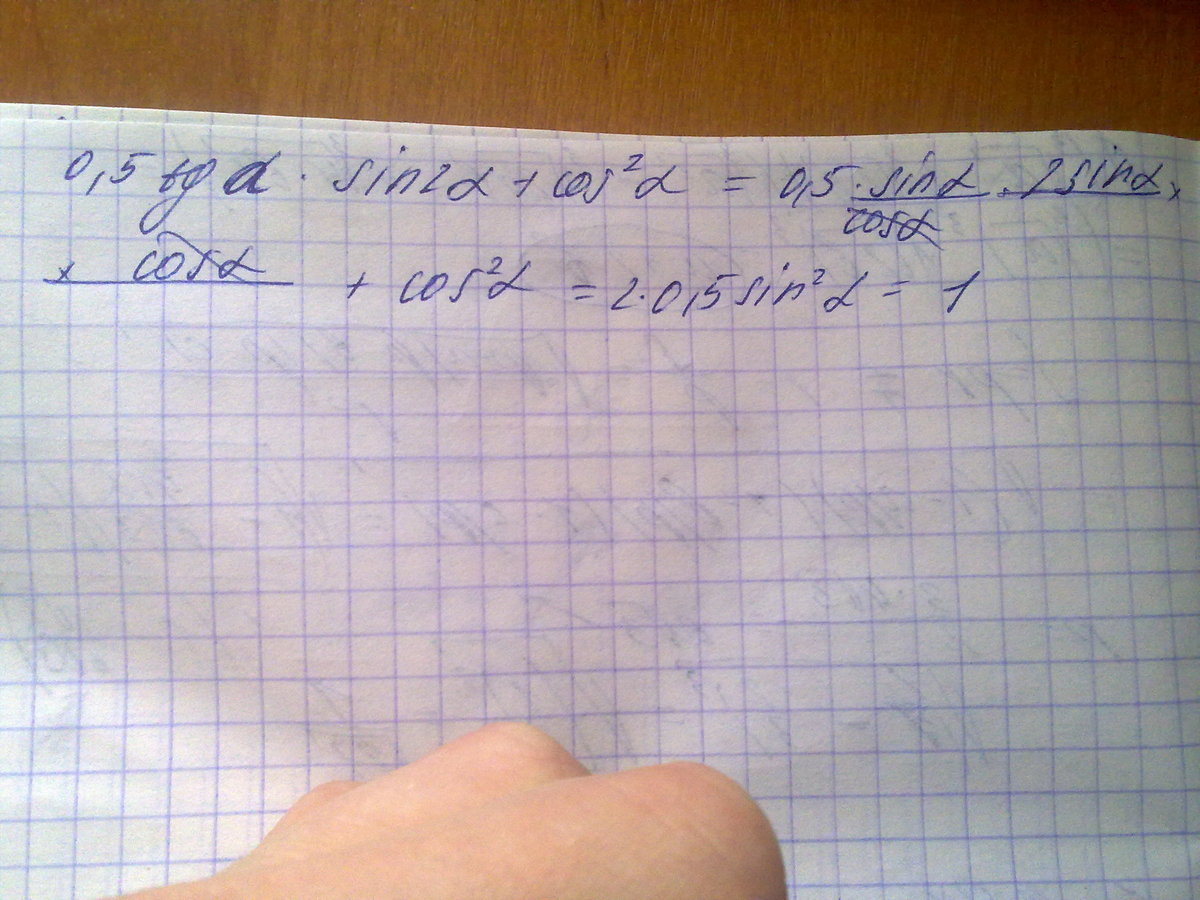 0,5 tg α · sin2α + cos²α = 0,5 · sinα/cosα · 2sinα ×
× cosα + cos²α = 2·0,5 sin²α = 1